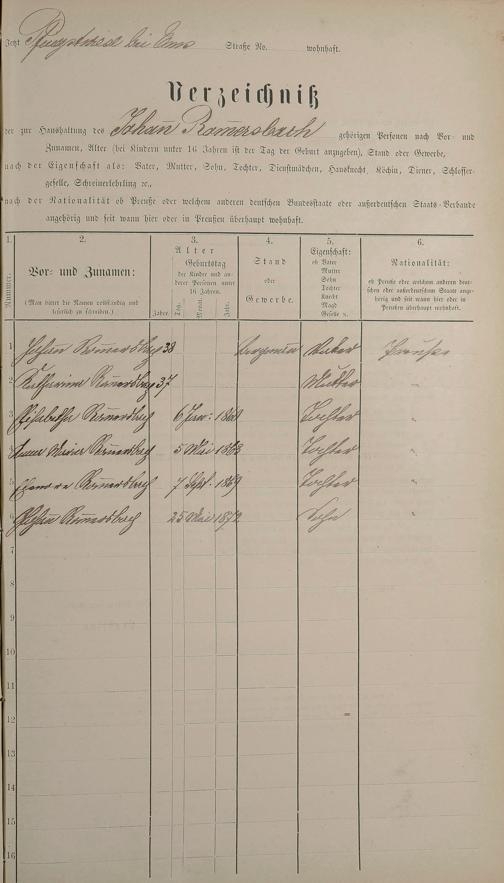 Jetzt Pfingstwiese bei Ems Straße No. wohnhaft.
Verzeichniß
der zur Haushaltung des Johann Romersbach gehörigen Personen nach Vor- und
Zunamen, Alter (bei Kindern unter 16 Jahren ist der Tag der Geburt anzugeben), Stand oder Gewerbe,
nach der Eigenschaft als: Vater, Mutter, Sohn, Tochter, Dienstmädchen, Hausknecht, Köchin, Diener, Schlosser-
geselle, Schreinerlehrling ꝛc.,
nach der Nationalität ob Preuße oder welchem anderen deutschen Bundesstaate oder außerdeutschen Staats-Verbande
angehörig und seit wann hier oder in Preußen überhaupt wohnhaft.
1. 2. 3. 4. 5. 6.
Nummer.
Vor- und Zunamen:
(Man bittet die Namen vollständig und
leserlich zu schreiben.)
Alter
Jahre.
Geburtstag
der Kinder und an-
derer Personen unter
16 Jahren.
Tag. Monat. Jahr.
Stand
oder
Gewerbe.
Eigenschaft:
ob Vater
Mutter
Sohn
Tochter
Knecht
Magd
Geselle ꝛc.
Nationalität:
ob Preuße oder welchem anderen deut-
schen oder außerdeutschen Staate ange-
hörig und seit wann hier oder in
Preußen überhaupt wohnhaft.
1 Johann Romersbach 38 Vater Preuße
2 Katharina Romersbach 37 Mutter "
3 Elisabetha Romersbach 6 Jan. Tochter "
4 Anna Maria Romersbach 5 Mai 1863 Tochter "
5 Romersbach 7 Sept. 1869 Tochter "
6 Johann Romersbach 25 Mai 1872 Sohn "
7
8
9
10
11
12
13
14
15
16